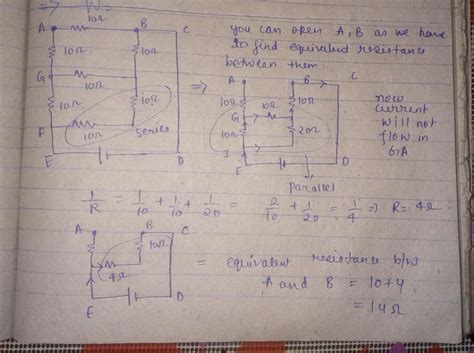 ⇒ W =
10Ω
A B C
10Ω 10Ω
G 10Ω
10Ω 10Ω
F 10Ω series
E D
you can open A, B as we have
to find equivalent resistance
between them.
⇒
A B C
10Ω 10Ω 10Ω
G
10Ω 20Ω
I
E D
parallel
now
current
will not
flow in
GA
1/R = 1/10 + 1/10 + 1/20 = 2/10 + 1/20 = 1/4 ⇒ R = 4Ω
A B C
10Ω
4Ω
E D
= equivalent resistance b/w
A and B = 10+4
= 14Ω